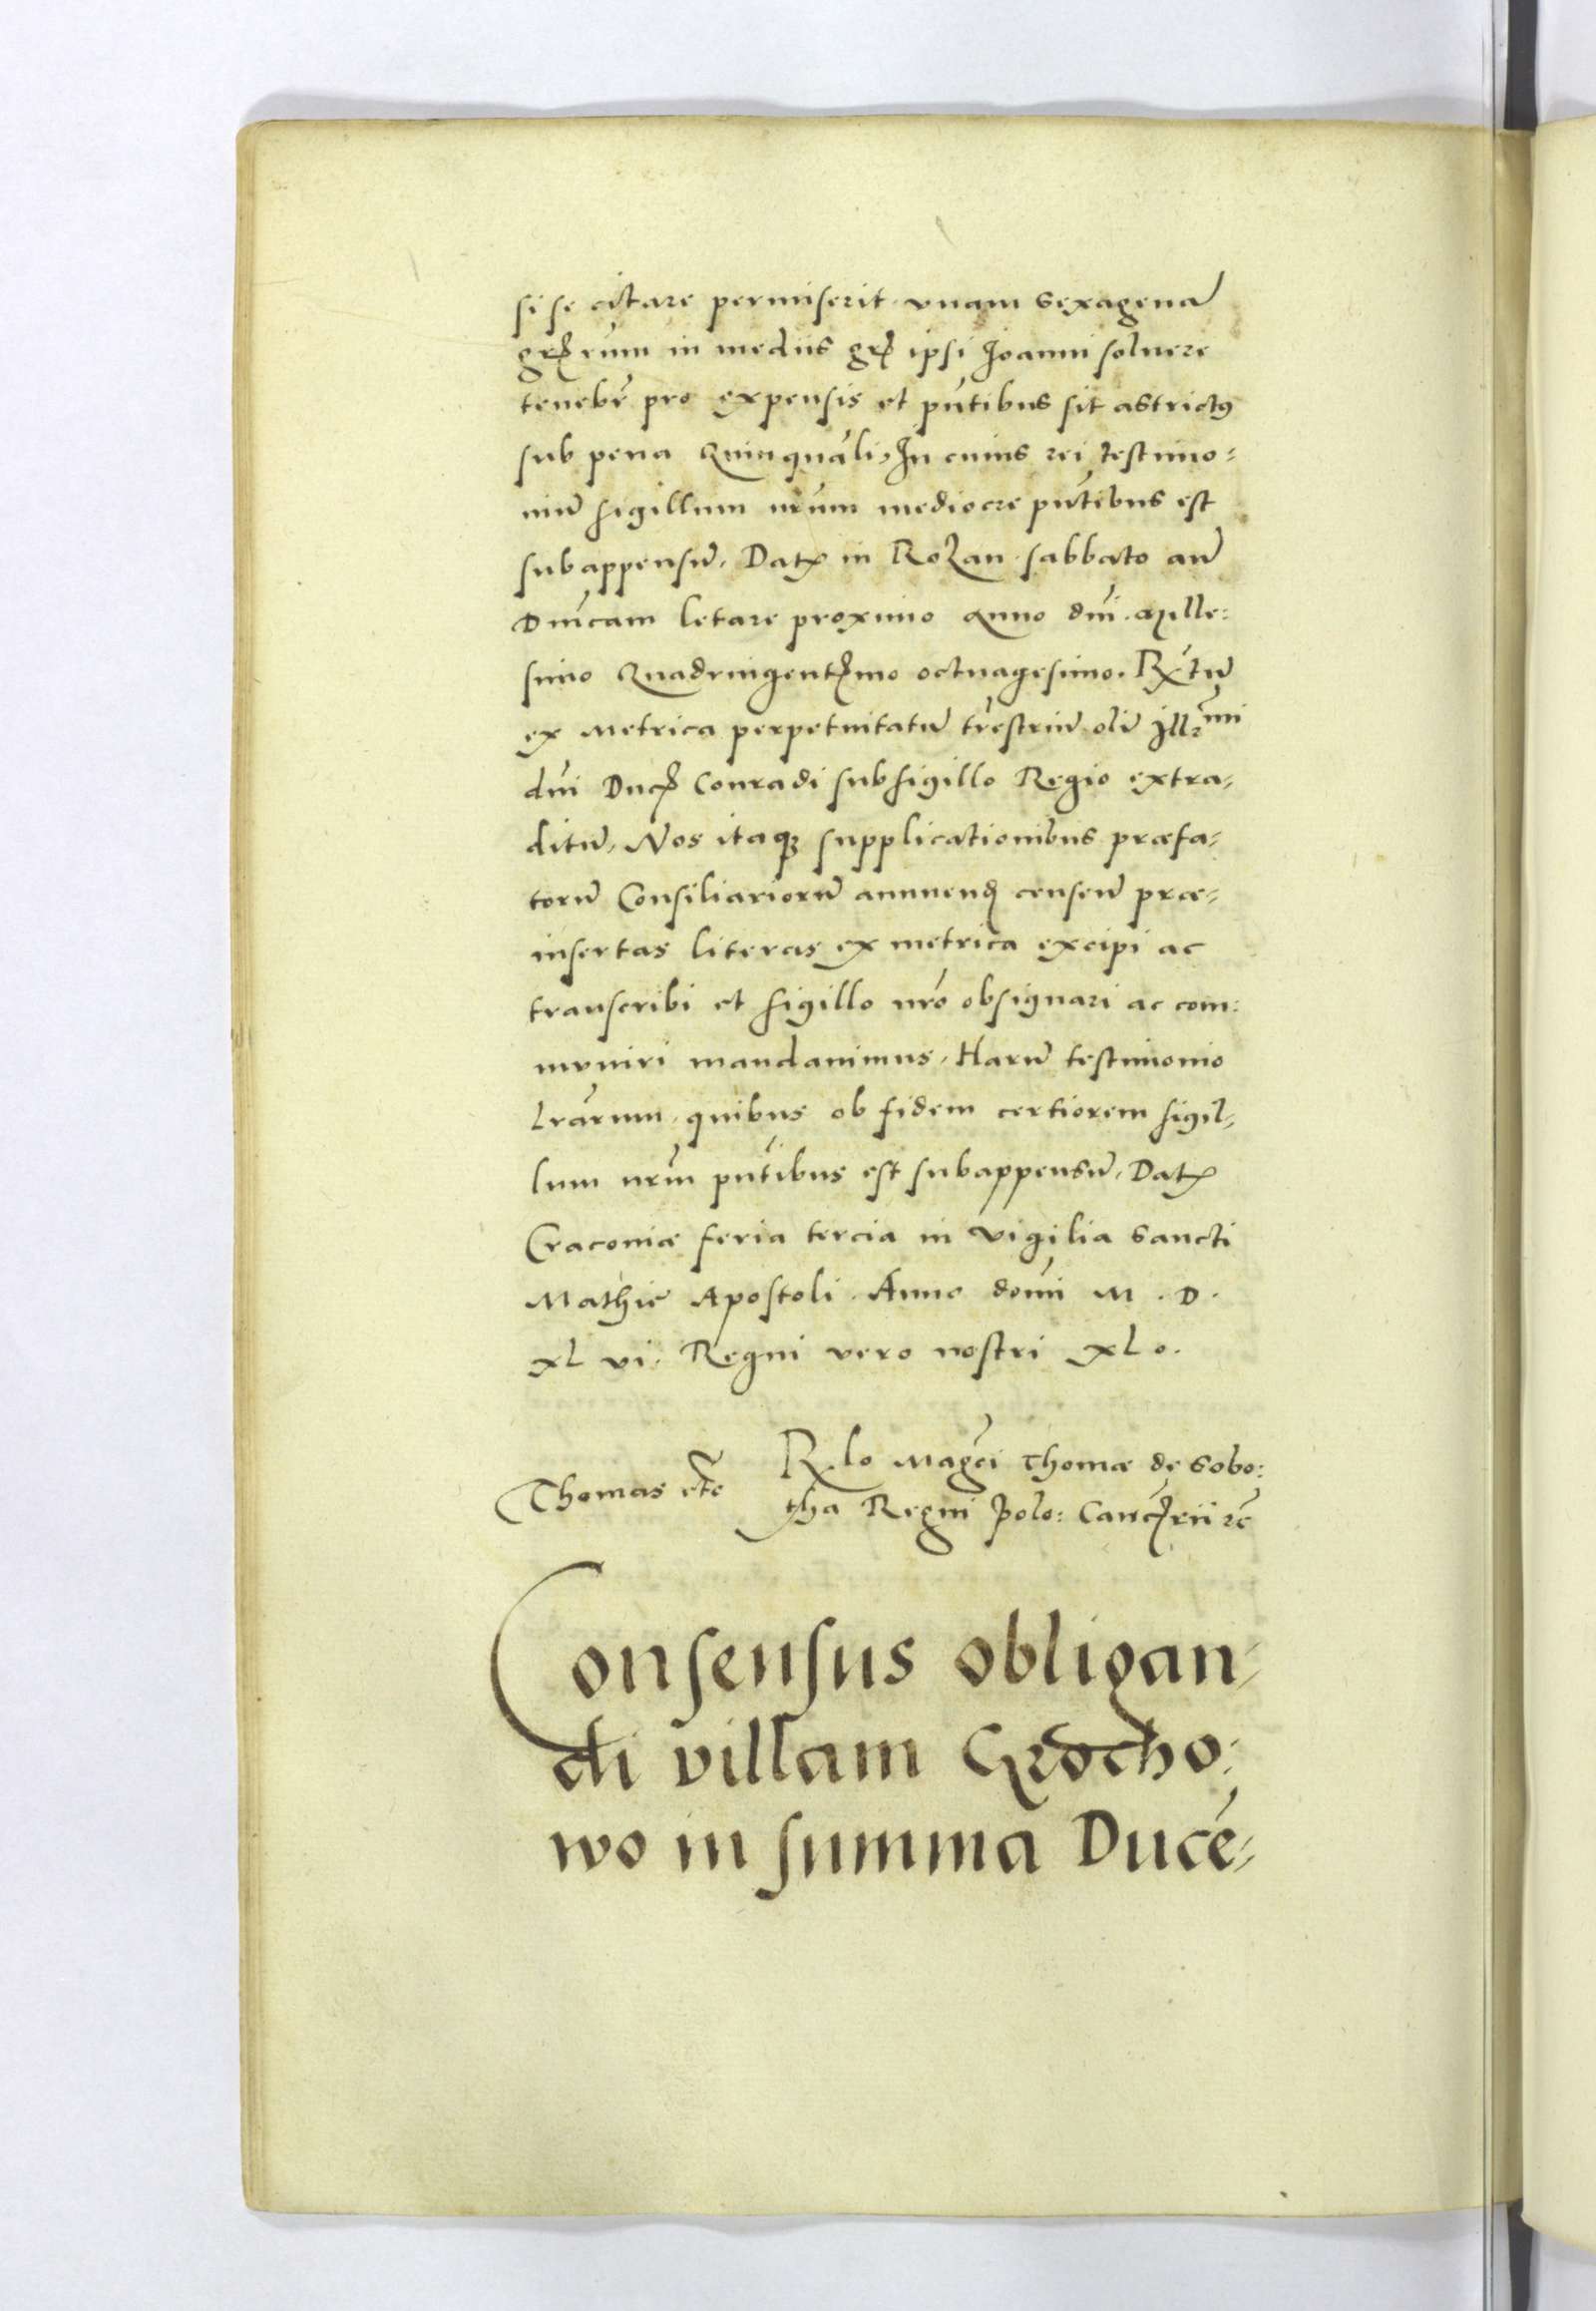 si se citare permiserit vnam sexagenã
grꝭ eum in mediis grꝭ ipsi Joanni soluere
tenebr̃ pro expensis et pñtibus sit astrictꝰ
sub pena Quinquãli, In cuius rei testimo=
niũ sigillum nrũm mediocre pñtibus est
subappensũ. Datꝭ in Rozan sabbato añ
Dñicam letare proximo Anno dñi Mille:
simo Quadringentꝭmo octuagesimo. Rx̃tũ
ex Metrica perpetuitatũ tr̃estriũ olĩ Illrm̃i
dñi Ducꝭ Conradi sub sigillo Regio extra,
ditũ, Nos itaqꝫ supplicationibus præfa,
torũ Consiliariorũ annuendꝭ censeñ præ,
insertas literas ex metrica excipi ac
transcribi et sigillo nr̃o obsignari ac com:
muniri mandauimus, Harũ testimonio
lrãrum, quibus ob fidem certiorem sigil,
lum nrm̃ pñtibus est subappensũ, Datꝭ
Cracouiæ feria tercia in vigilia sancti
Mathie Apostoli. Anno domi M . D .
xl vi. Regni vero nostri xl o.
Thomas etc̃
R.lo Magc̃i Thomæ de sobo:
tha Regni Polo: Canc̃ꝭrii rc̃
Consensus obligan,
di villam Grocho:
wo in summa Ducẽ,